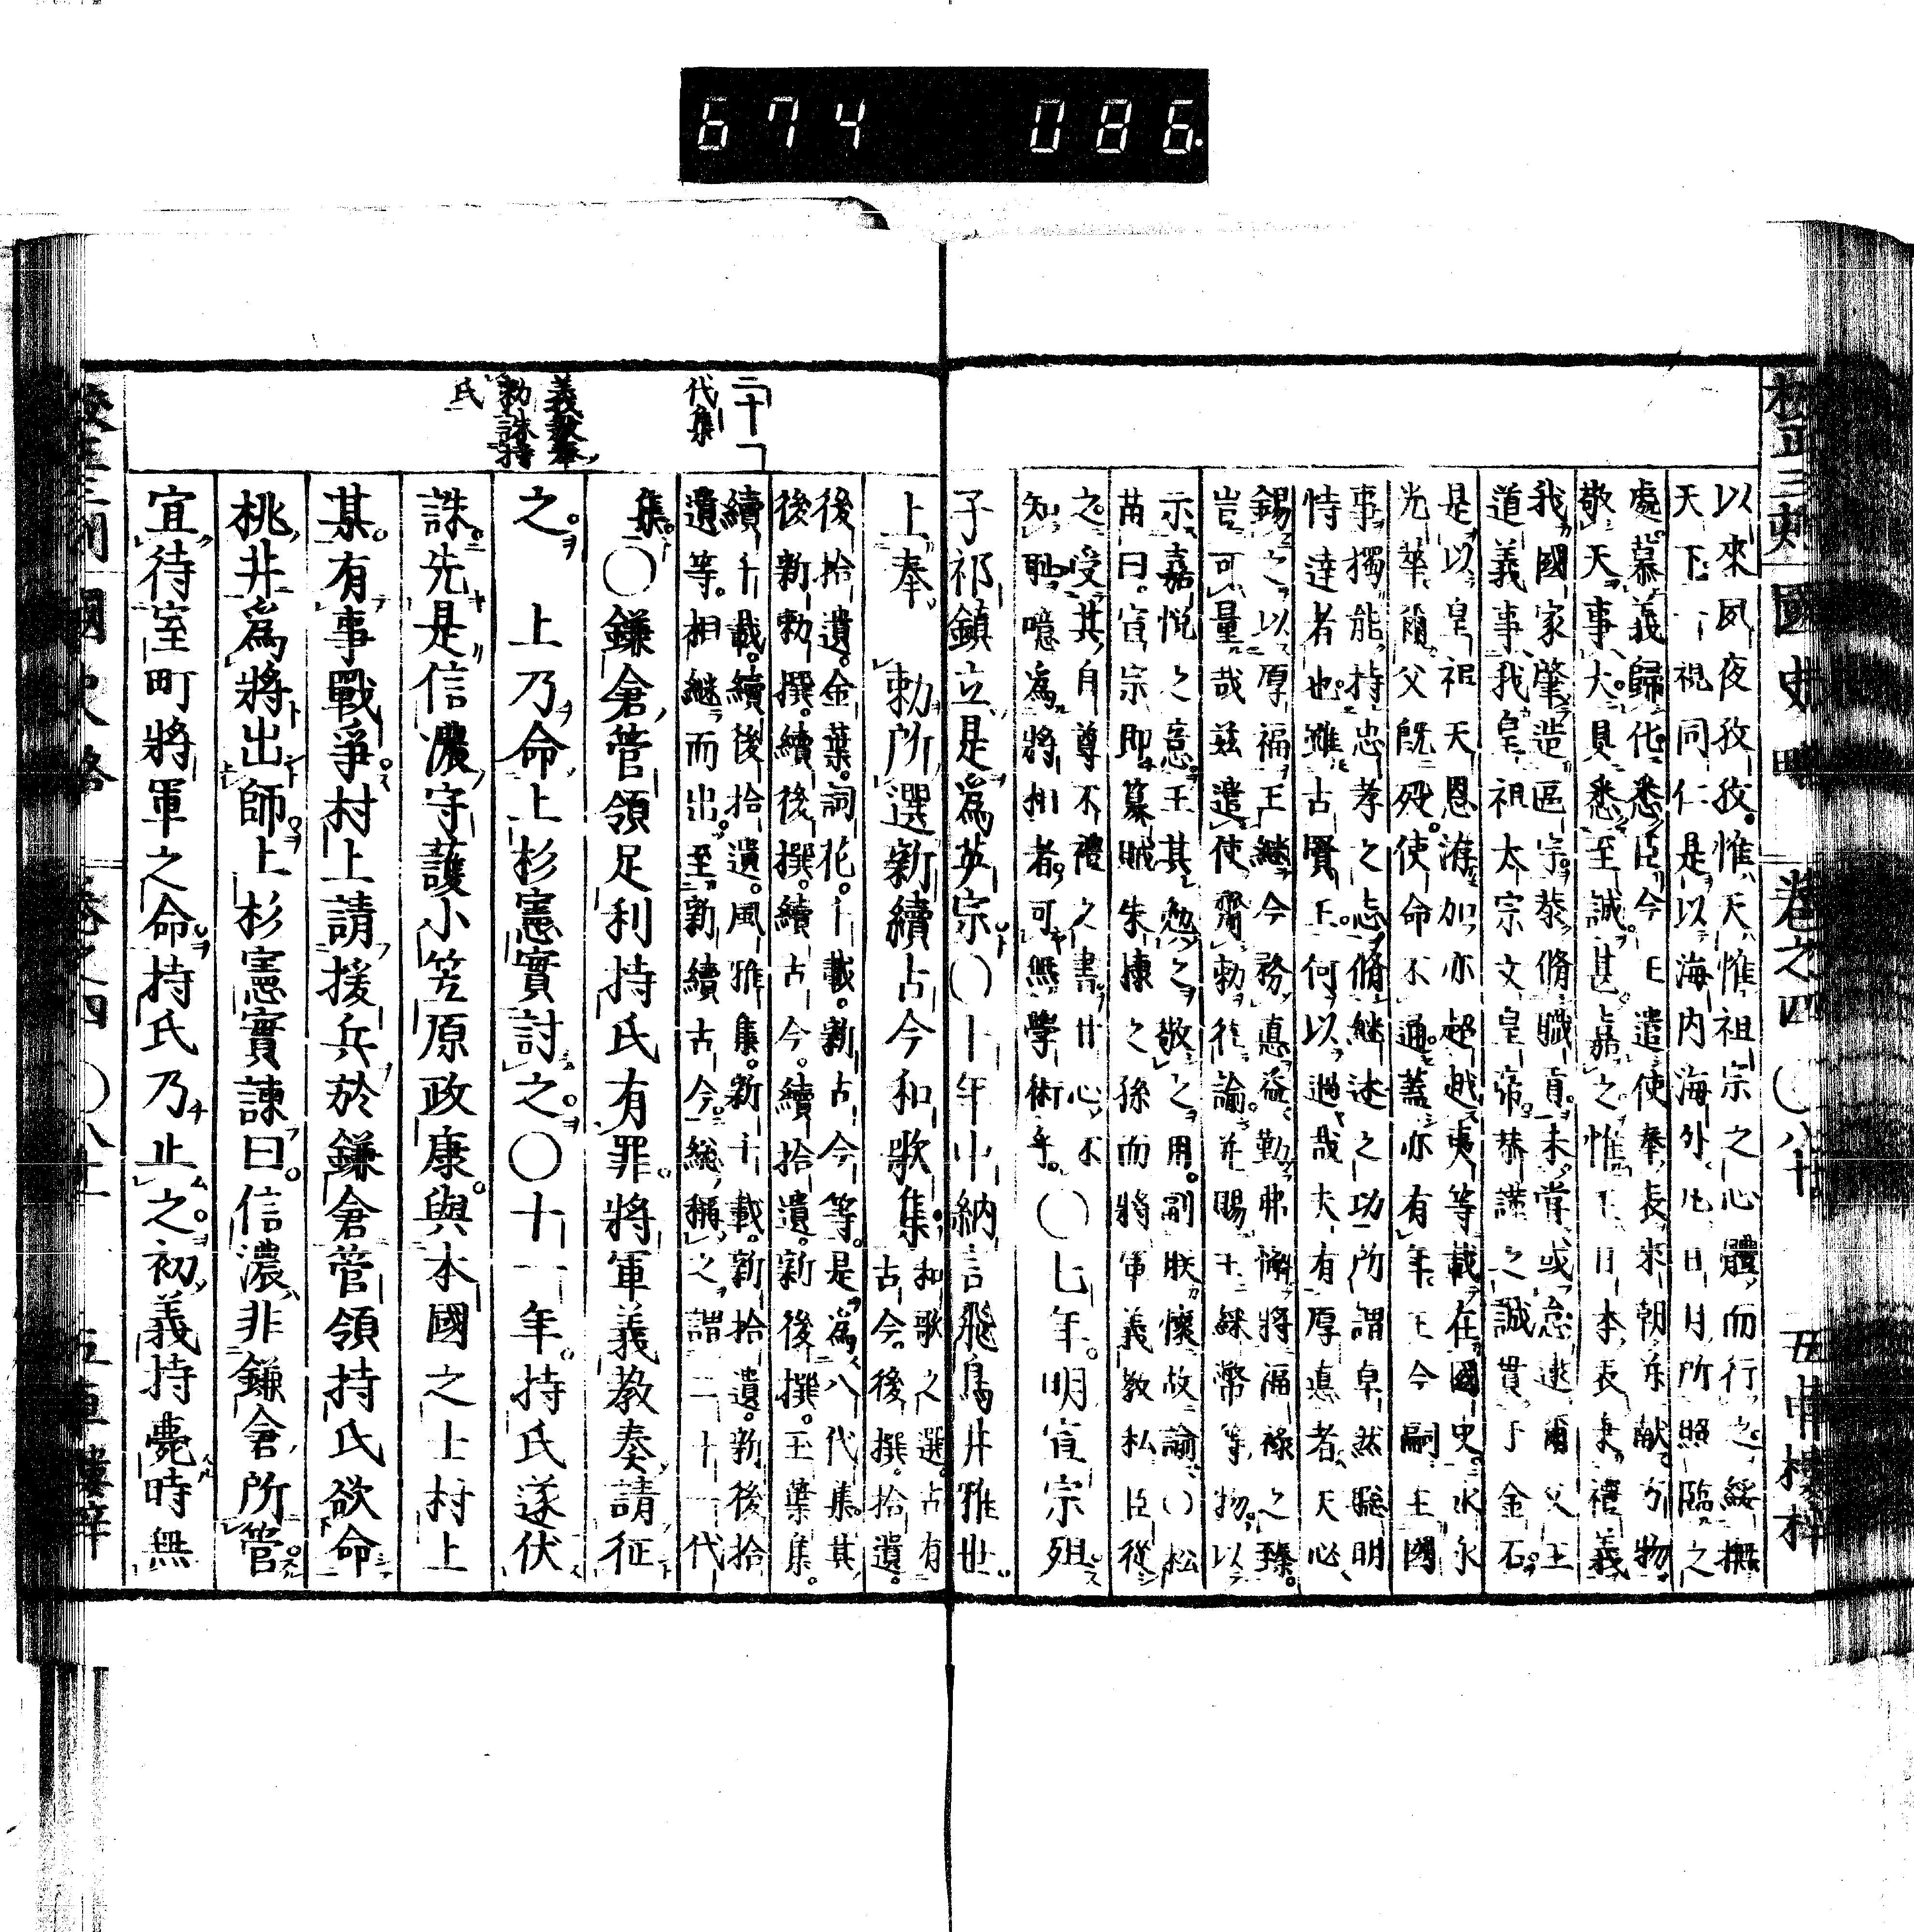 674 086.
校正三刻 國史略 卷之四 〇八十 五車樓梓
以來夙夜孜孜惟天惟祖宗之心體而行之綏撫
天下一視同仁是以海內海外凡日月所照臨之
處慕義歸化悉臣今王遣使奉表來朝幷献方物
敬天事大貝悉至誠甚嘉之惟王日本表東禮義
我國家肇造區宇恭脩職貢未嘗或怠逮爾父王
道義事我皇祖太宗文皇帝恭謹之誠貫于金石
是以皇祖天恩洊加亦超越夷等載在國史永永
光華爾父旣歿使命不通蓋亦有年王今嗣王國
事獨能持忠孝之志脩繼述之功所謂卓然聰明
恃達者也雖古賢王何以過哉夫有厚悳者天心
錫之以厚福王繼今務悳益勤弗懈將福祿之臻
豈可量哉茲遣使齎勅徃諭幷賜十綵幣等物以
示嘉悦之意王其勉之敬之用副朕懷故諭〇松
苗曰宣宗即簒賊朱棣之孫而將軍義敎私臣從
之受其自尊不禮之書甘心不
知恥噫爲將相者可無學術乎〇七年明宣宗殂
子祁鎮立是爲英宗〇十年中納言飛鳥井雅世
上奉 勅所選新續古今和歌集和歌之選古有
古今後撰拾遺
後拾遺金葉詞花千載新古今等是爲八代集其
後新勅撰續後撰續古今續拾遺新後撰玉葉集
續千載續後拾遺風雅集新千載新拾遺新後拾
遺等相繼而出至新續古今総稱之謂二十一代
集〇鎌倉管領足利持氏有罪將軍義教奏請征
之 上乃命上杉憲實討之〇十一年持氏遂伏
誅先是信濃守護小笠原政康與本國之士村上
某有事戰爭村上請援兵於鎌倉管領持氏欲命
桃井爲將出師上杉憲實諫曰信濃非鎌倉所管
宜待室町將軍之命持氏乃止之初義持薨時無
二十一
代集
義教奉
勅誅持
氏